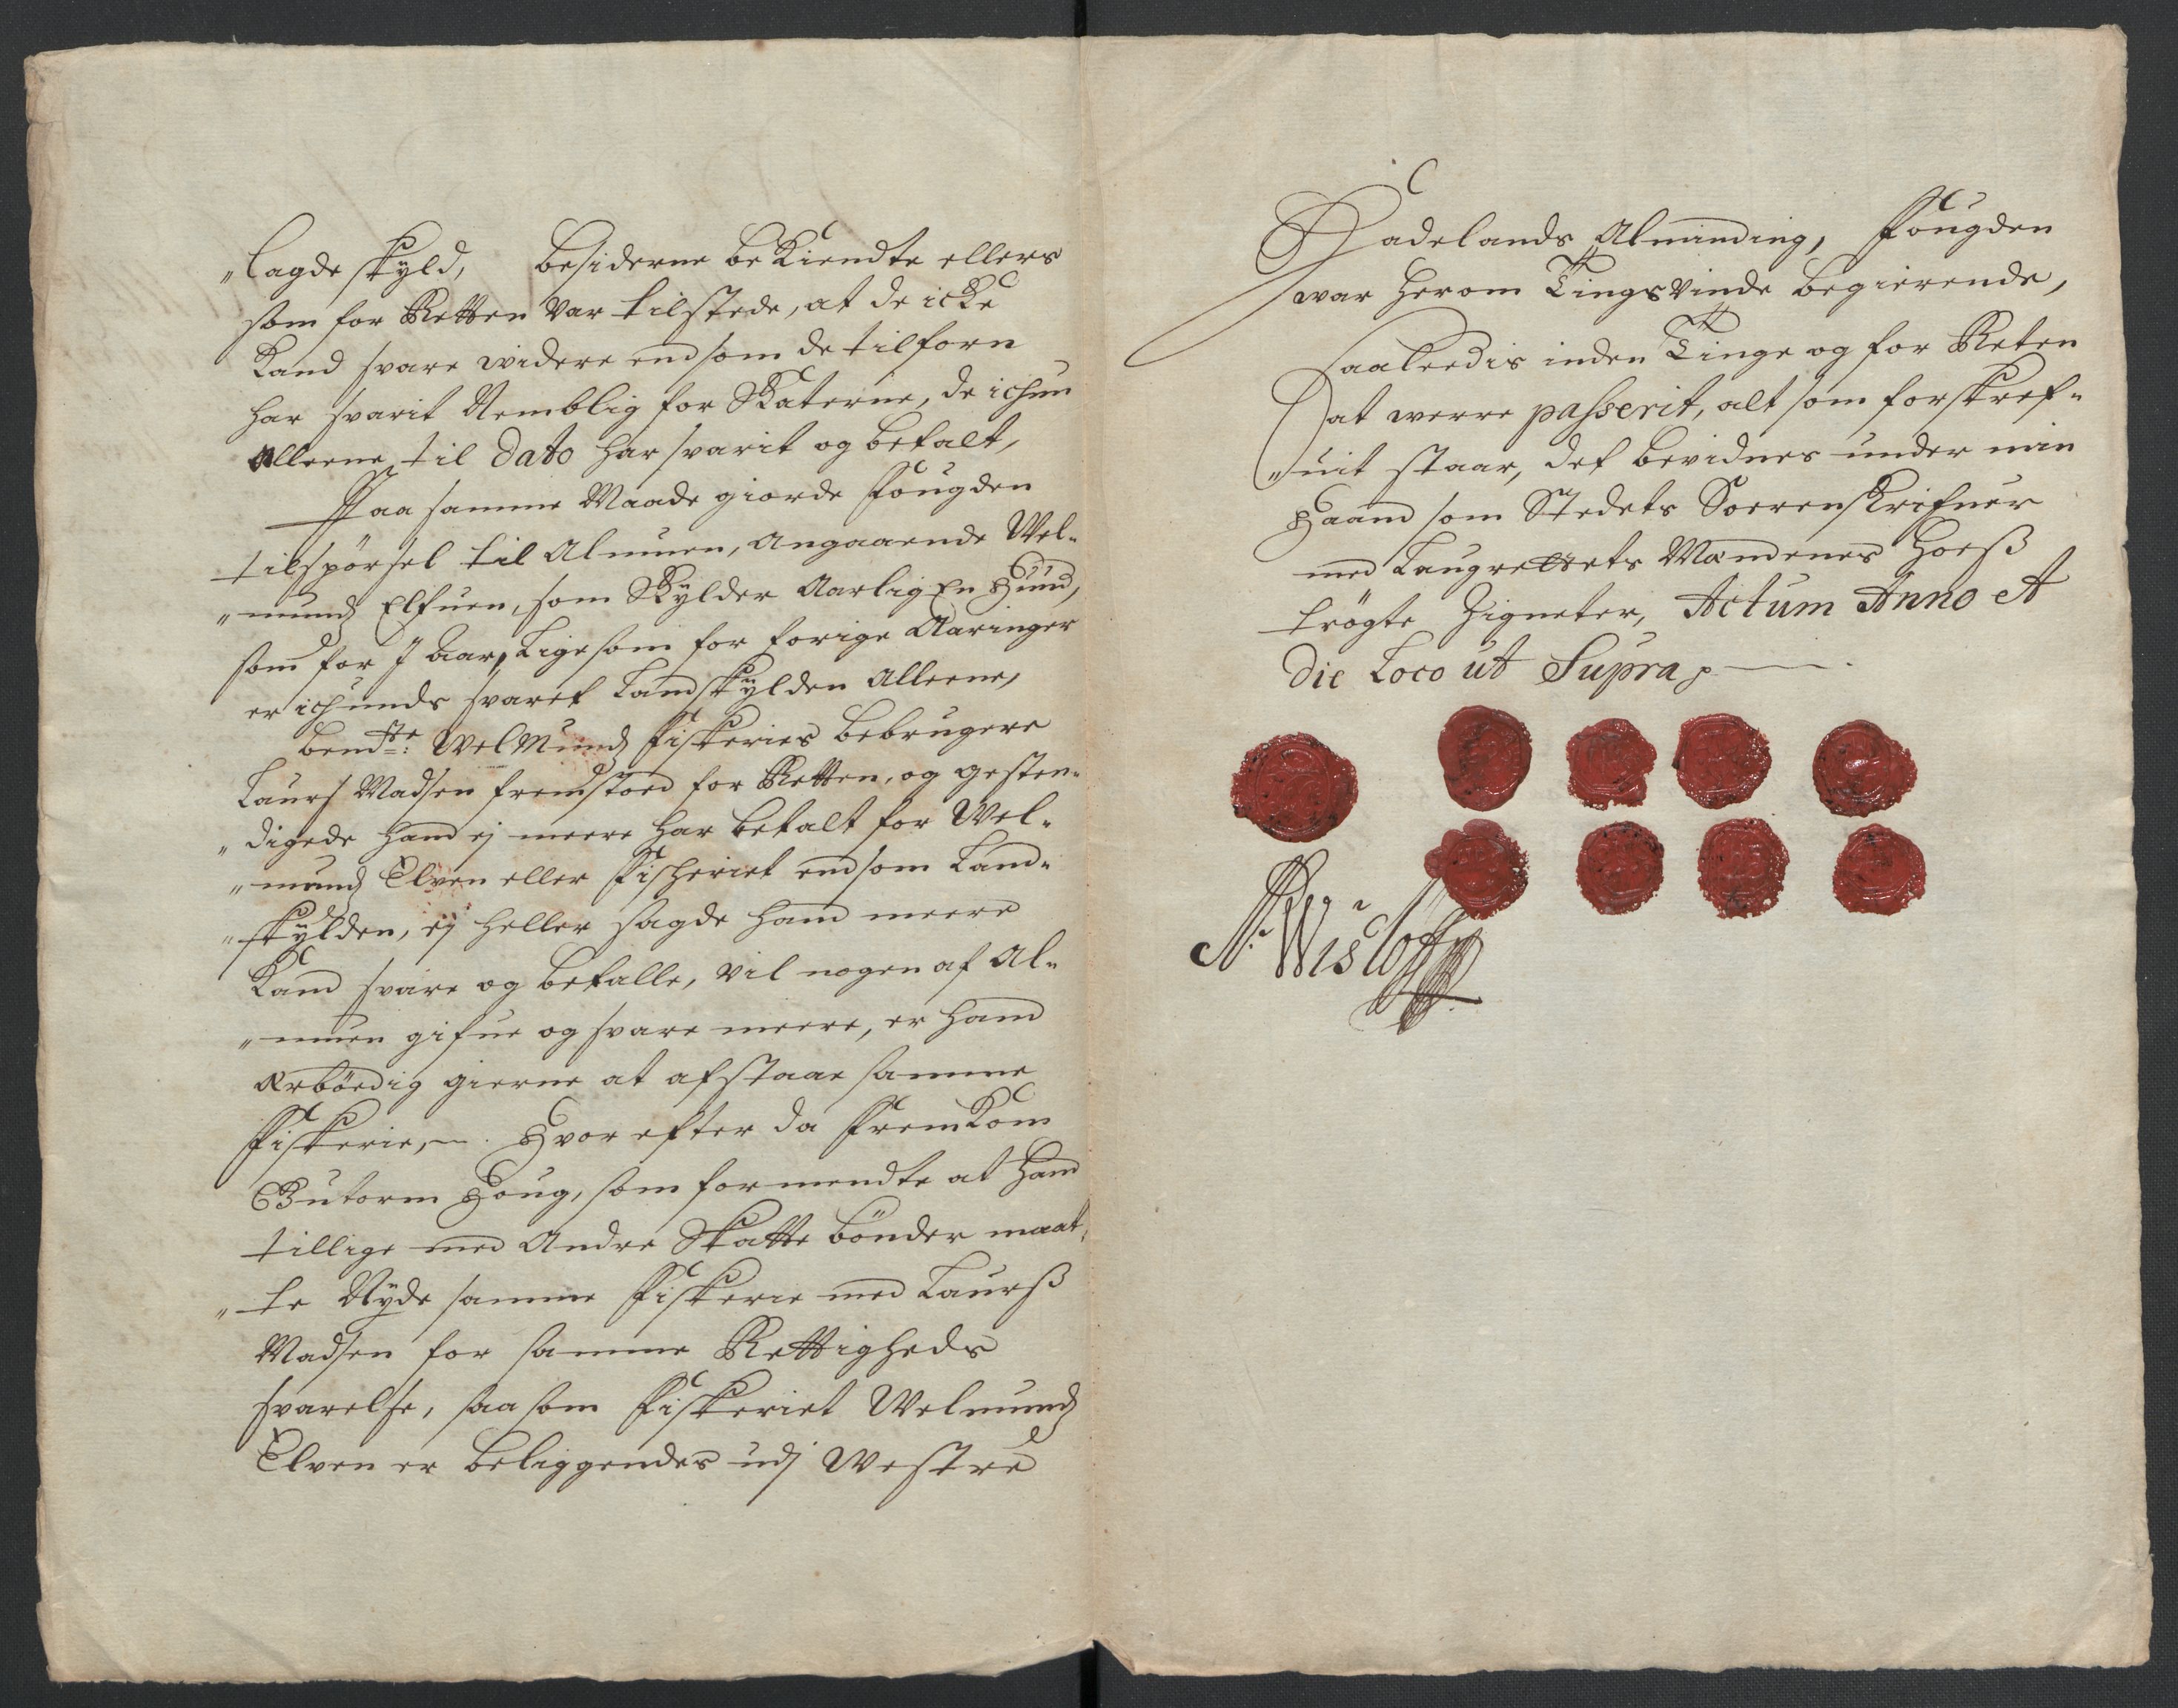 „lagde skyld, besiderne beKiendte ellers
som for Retten var tilstede, at de icke
Kand svare widere end som de tilforn
har svarit Nemblig for Skaterne, de ichun
Alleene til Dato har svarit og betalt,
Paa samme Maade giorde Fougden
tilspörsel til Almuen, Angaaende Wel-
„mund Elfuen, som Skylder Aarlig En Hund,
som for J Aar, Ligesom for forige Aaringer
er ichunds svaret Landskylden Alleene,
bemdte: WelMunds Fiskeries bebrugere
Laurs Madsen fremstoed for Retten, og gesten-
„digede hand ej meere har betalt for Wel-
„mund Elven eller Fischeriet end som Land-
„skylden, ej heller sagde hand meere
Kand svare og betalle, vil nogen af Al-
„muen gifue og svare meere, er hand
Ærbödig gierne at afstaae samme
Fiskerie, Hvor efter da Fremkom
Gutorm Houg, som formendte at hand
tillige med Andre Skatte bönder maat-
„te Nyde samme Fiskerie med Laurß
Madsen for samme Rettigheds
svarelse, saasom Fiskeriet Welmund
Elven er beliggendes udj Westre
Hadelands Alminding, Fougden
war herom Tingsvinde begierende,
Saaleedis inden Tinge og for Reten
at werre passerit, alt som forskref-
„uit staar, det bevidnes under min
Haand som Stedets Soerenskrifuer
med Laugrettets Mændenes hoeß
trögte Zigneter, Actum Anno et
Die Loco ut Supra
N: Wislöff